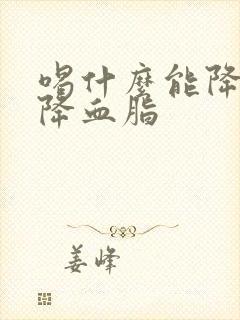 喝什麽能降
降血脂
姜峰